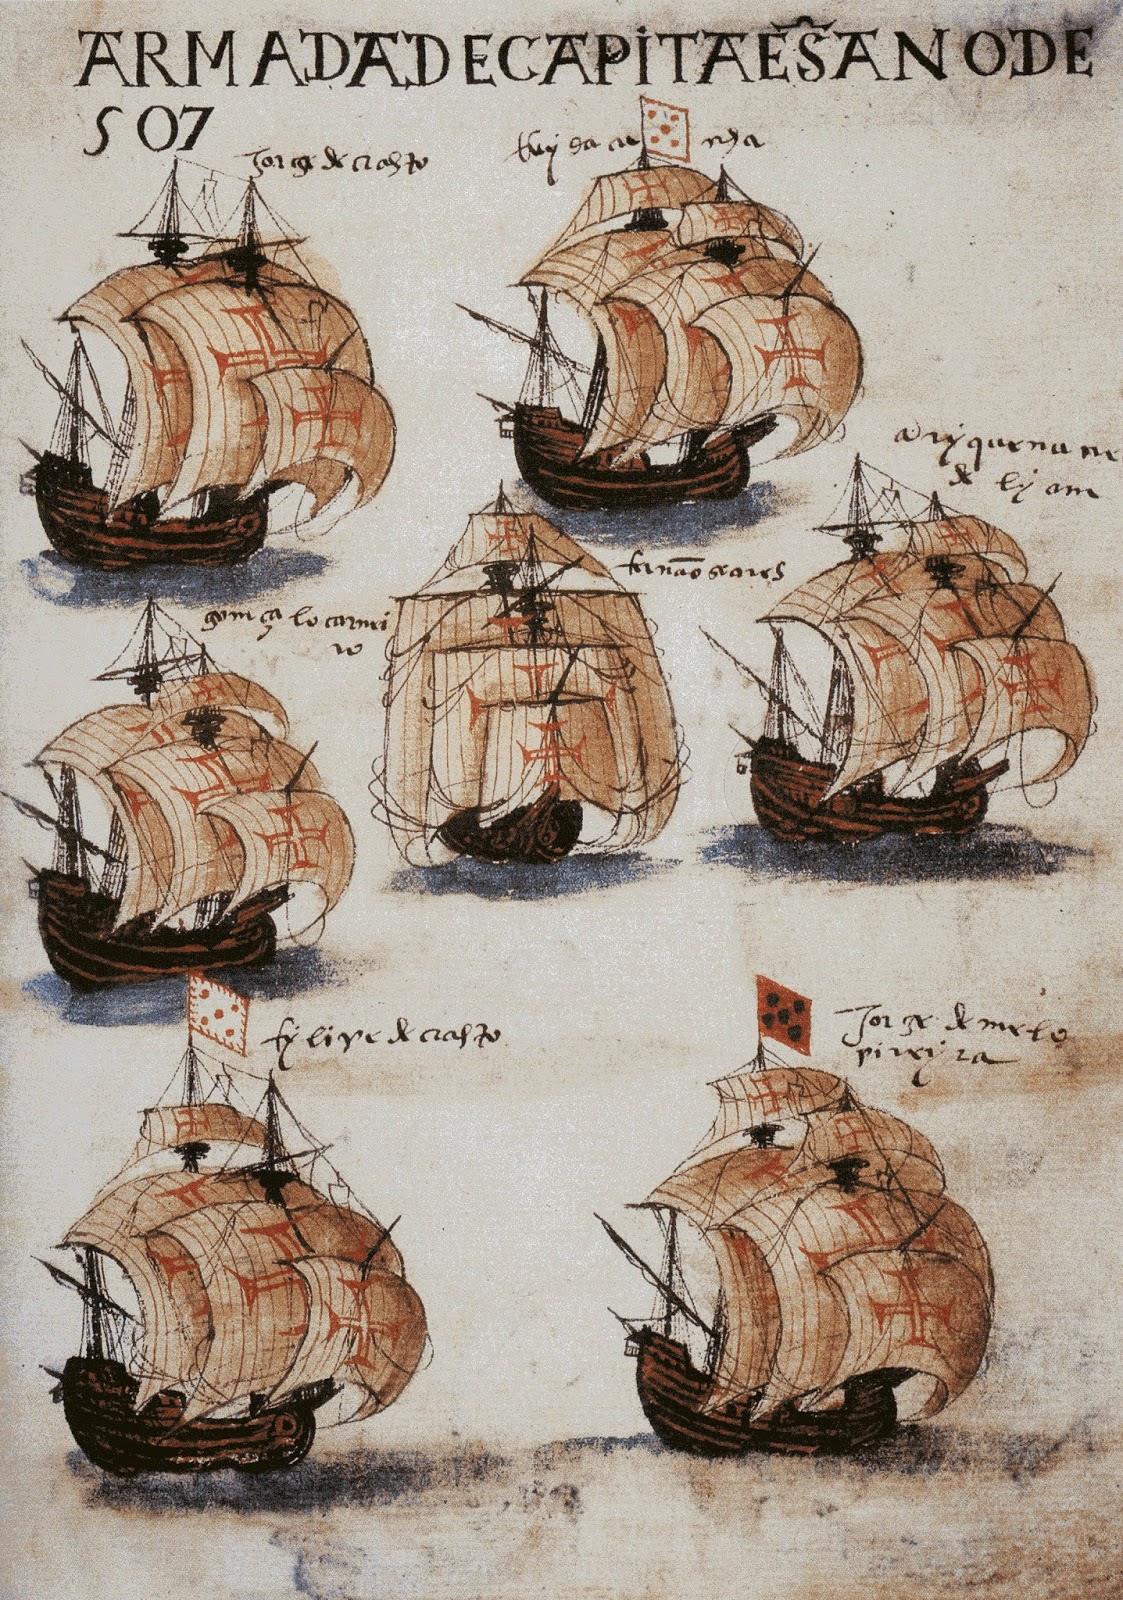 ARMADA DE CAPITAES̃ ANO DE
507
Jorge de crasto
Ruy da cunha
anRyque nunez
de lyam
fernão soares
gonçalo carnei
ro
fylipe de crasto
Jorge de melo
pireyra